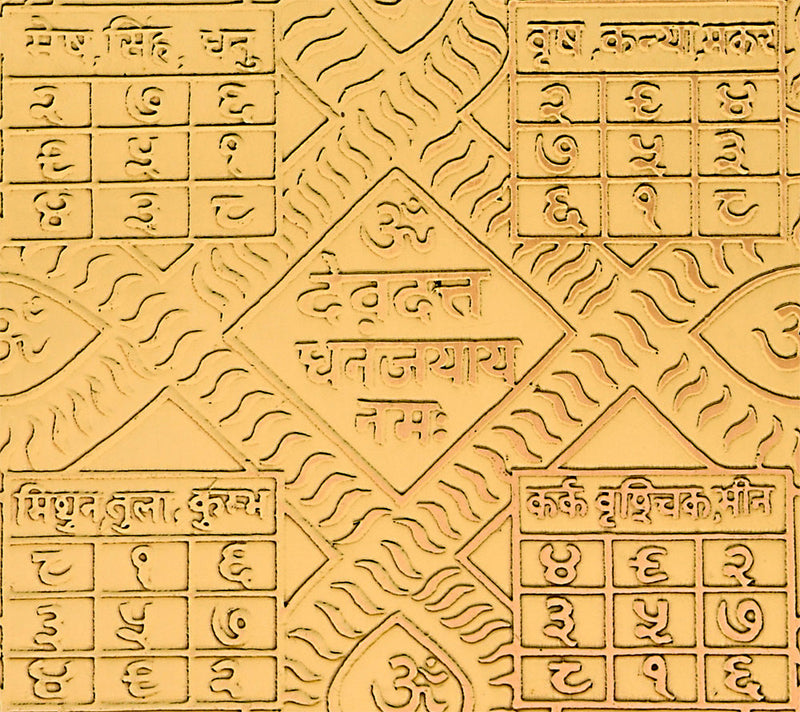 मेष, सिंह, धनु
२ ७ ६
९ ५ १
४ ३ ८
वृष ,कन्या,मकर
२ ९ ४
७ ५ ३
६ १ ८
ॐ
ॐ
देवदत्त
धनजयाय
नमः
ॐ
मिथुन,तुला, कुम्भ
८ १ ६
३ ५ ७
४ ९ २
कर्क वृश्चिक,मीन
४ ९ २
३ ५ ७
८ १ ६
ॐ